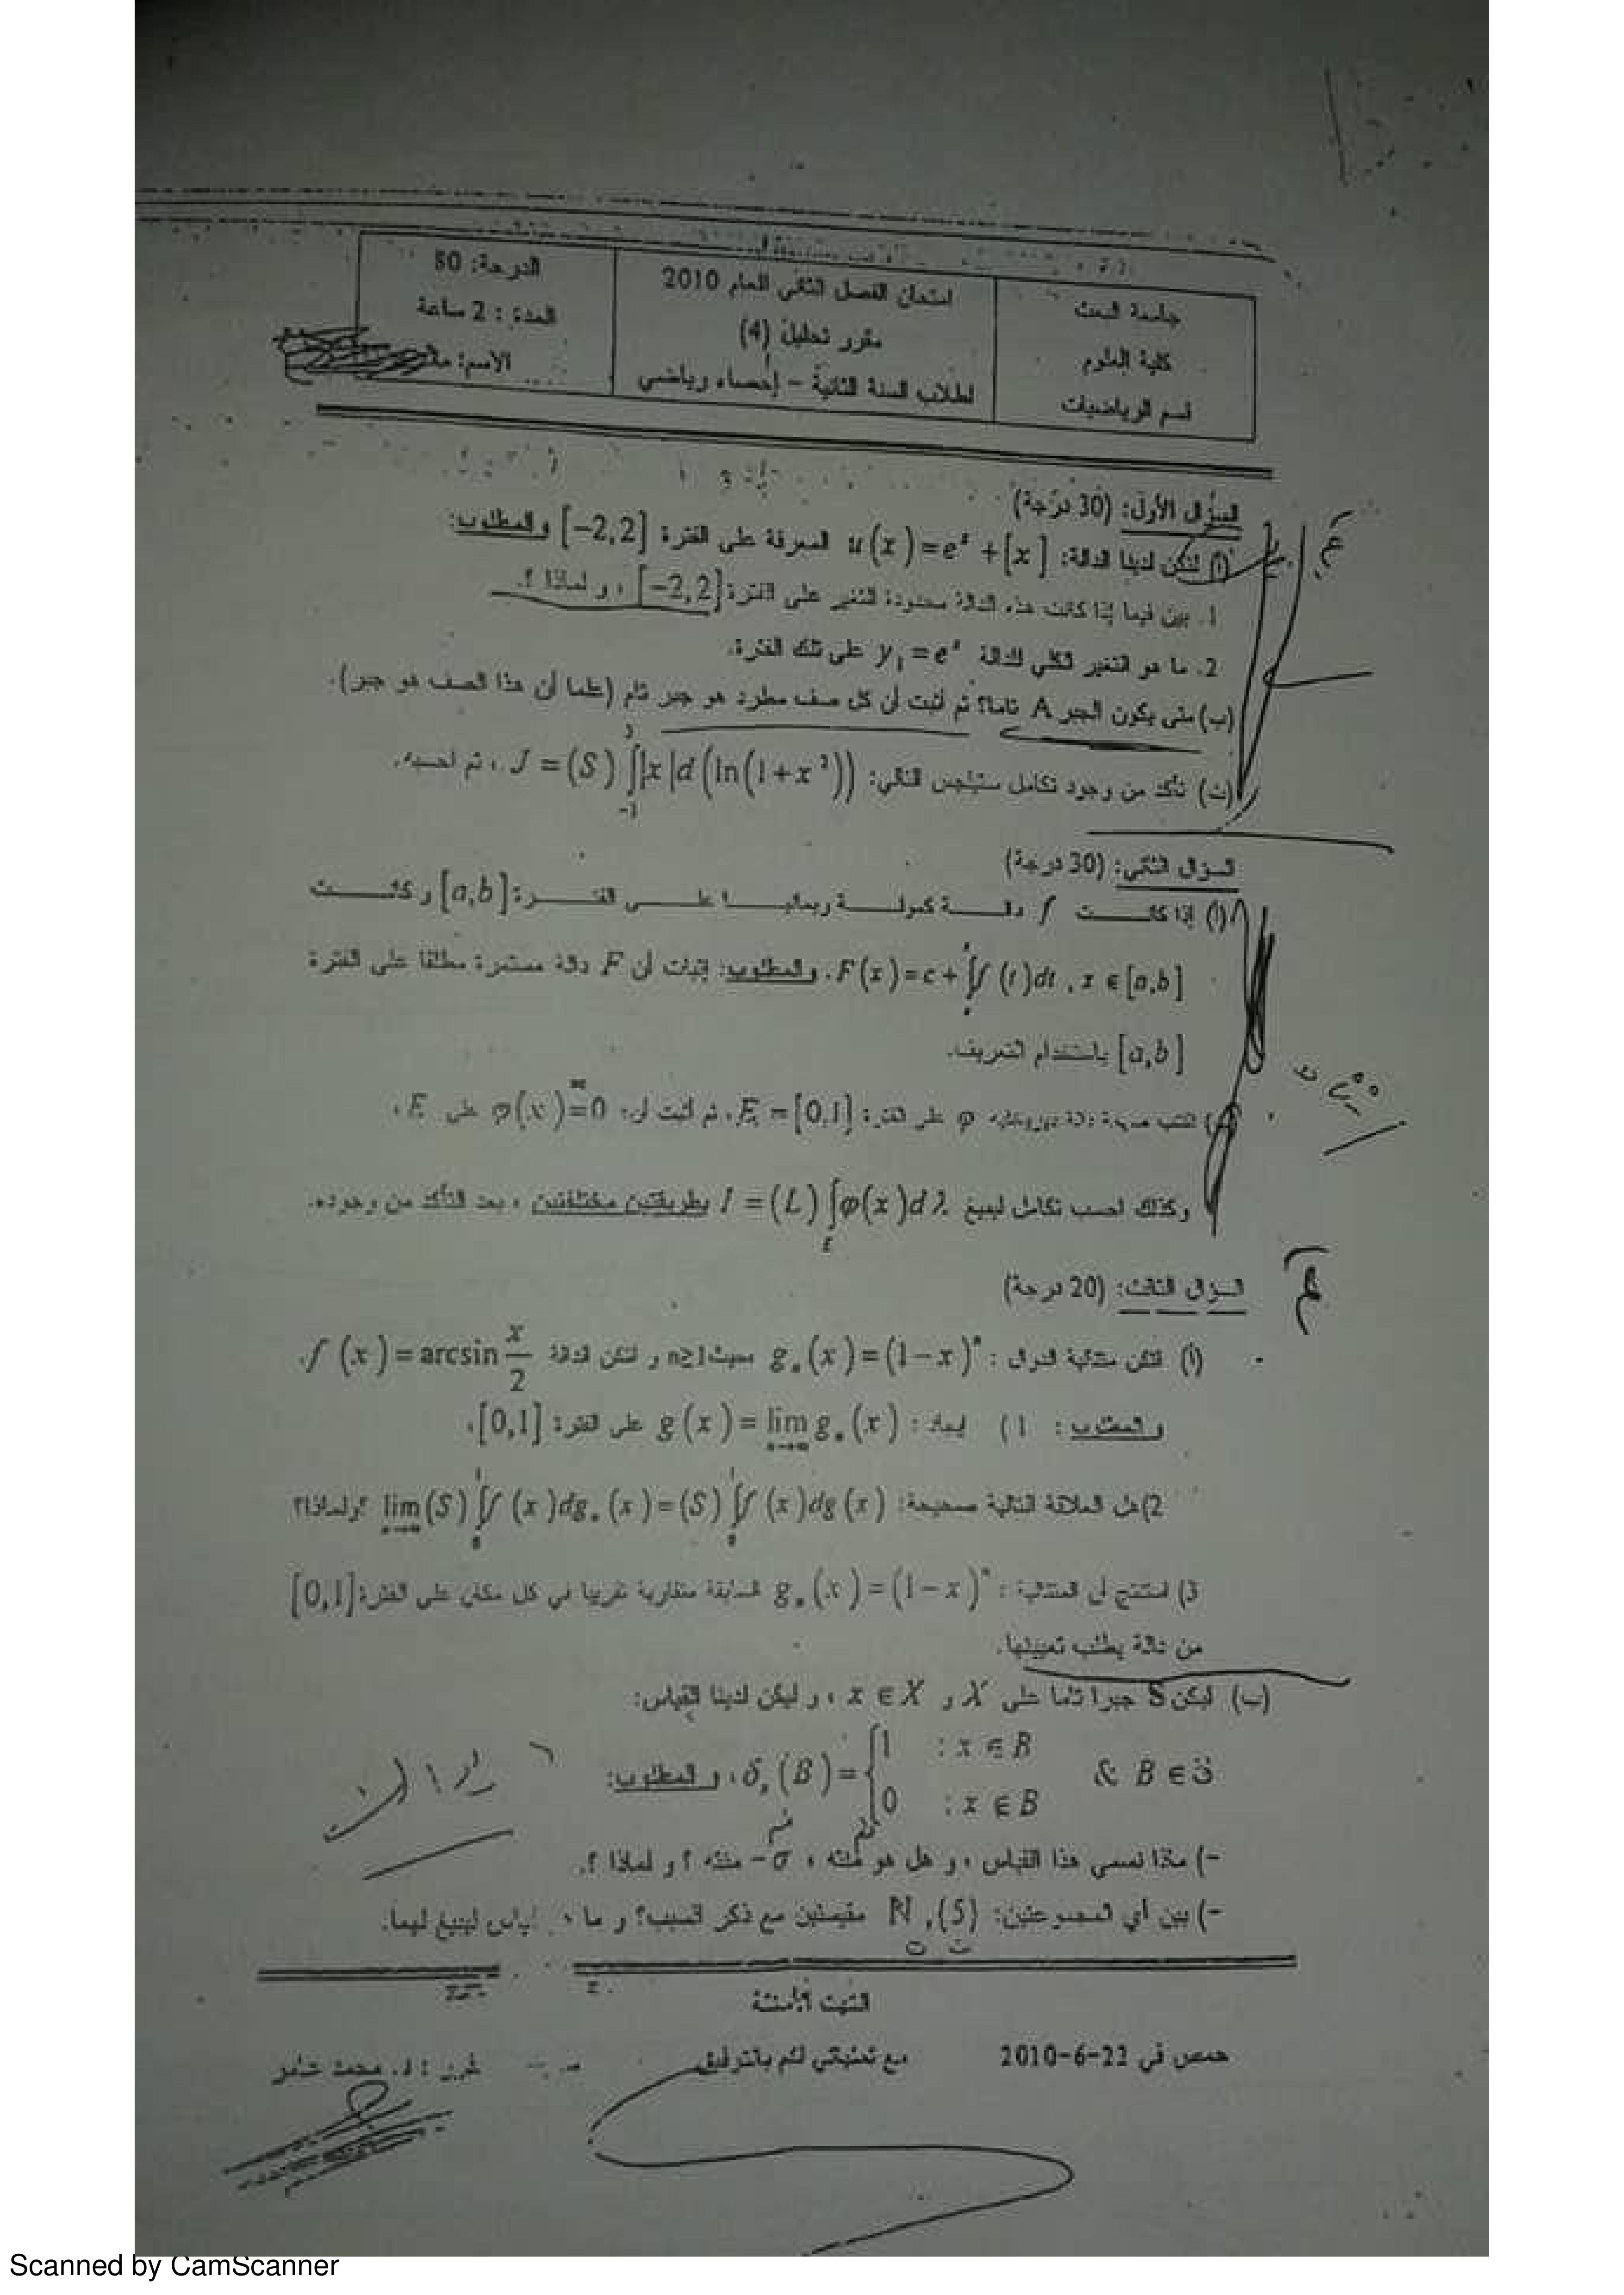 جامعة البعث
كلية العلوم
قسم الرياضيات
امتحان الفصل الثاني للعام 2010
مقرر تحليل (4)
لطلاب السنة الثانية – إحصاء رياضي
الدرجة: 80
المدة : 2 ساعة
الاسم:
السؤال الأول: (30 درجة)
(أ) لتكن لدينا الدالة: u(x)=e^x+[x] المعرفة على الفترة [-2,2] والمطلوب:
1. بين فيما إذا كانت هذه الدالة محدودة التغير على الفترة [-2,2] ، و لماذا ؟.
2. ما هو التغير الكلي للدالة y₁=e^x على تلك الفترة.
(ب) متى يكون الجبر A تاما؟ ثم أثبت أن كل صف مطرد هو جبر تام (علما أن هذا الصف هو جبر).
(ت) تأكد من وجود تكامل ستيلجس التالي: J=(S)∫|x|d(ln(1+x²)) ، ثم احسبه.
السؤال الثاني: (30 درجة)
(أ) إذا كانت f دالة كمولة ريمانيا على الفترة [a,b] و كانت
F(x)=c+∫f(t)dt , x ∈[a,b] ، والمطلوب: إثبات أن F دالة مستمرة مطلقا على الفترة
[a,b] باستخدام التعريف.
اكتب صيغة دالة ديريخليه φ على الفترة: E=[0,1]، ثم أثبت أن: φ(x)=0 على E ،
وكذلك احسب تكامل ليبيغ I=(L)∫_E φ(x)dλ بطريقتين مختلفتين ، بعد التأكد من وجوده.
السؤال الثالث: (20 درجة)
(أ) لتكن متتالية الدوال : gₙ(x)=(1-x)ⁿ بحيث n≥1 و لتكن الدالة f(x)=arcsin x/2.
و المطلوب : 1) إيجاد : g(x)=lim gₙ(x) على الفترة [0,1].
2) هل العلاقة التالية صحيحة: lim(S)∫₀¹f(x)dgₙ(x)=(S)∫₀¹f(x)dg(x) ؟ ولماذا؟
3) استنتج أن المتتالية : gₙ(x)=(1-x)ⁿ السابقة متقاربة تقريبا في كل مكان على الفترة [0,1]
من دالة يطلب تعيينها.
(ب) ليكن S جبرا تاما على X و x∈X ، و ليكن لدينا القياس:
δₓ(B)={1 : x∈B & B∈
0 : x∉B ، و المطلوب:
-) ماذا نسمي هذا القياس ، و هل هو منته ، σ- منته ؟ و لماذا ؟.
-) بين أي المجموعتين: {5}, ℕ مقيستين مع ذكر السبب؟ و ما قياس ليبيغ لهما.
انتهت الأسئلة
حمص في 22-6-2010
مع تمنياتي لكم بالتوفيق
Scanned by CamScanner